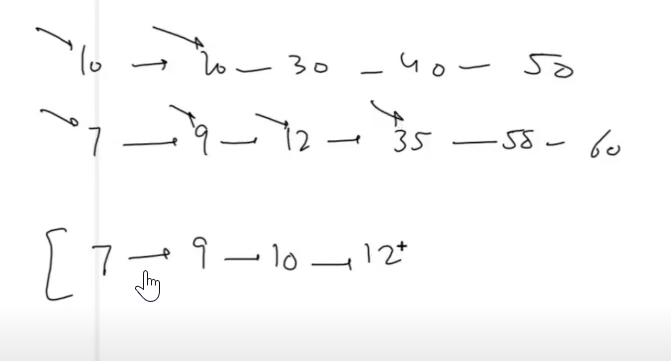 10 → 20 — 30 — 40 — 50
7 — 9 — 12 — 35 — 55 — 60
[ 7 → 9 — 10 — 12+